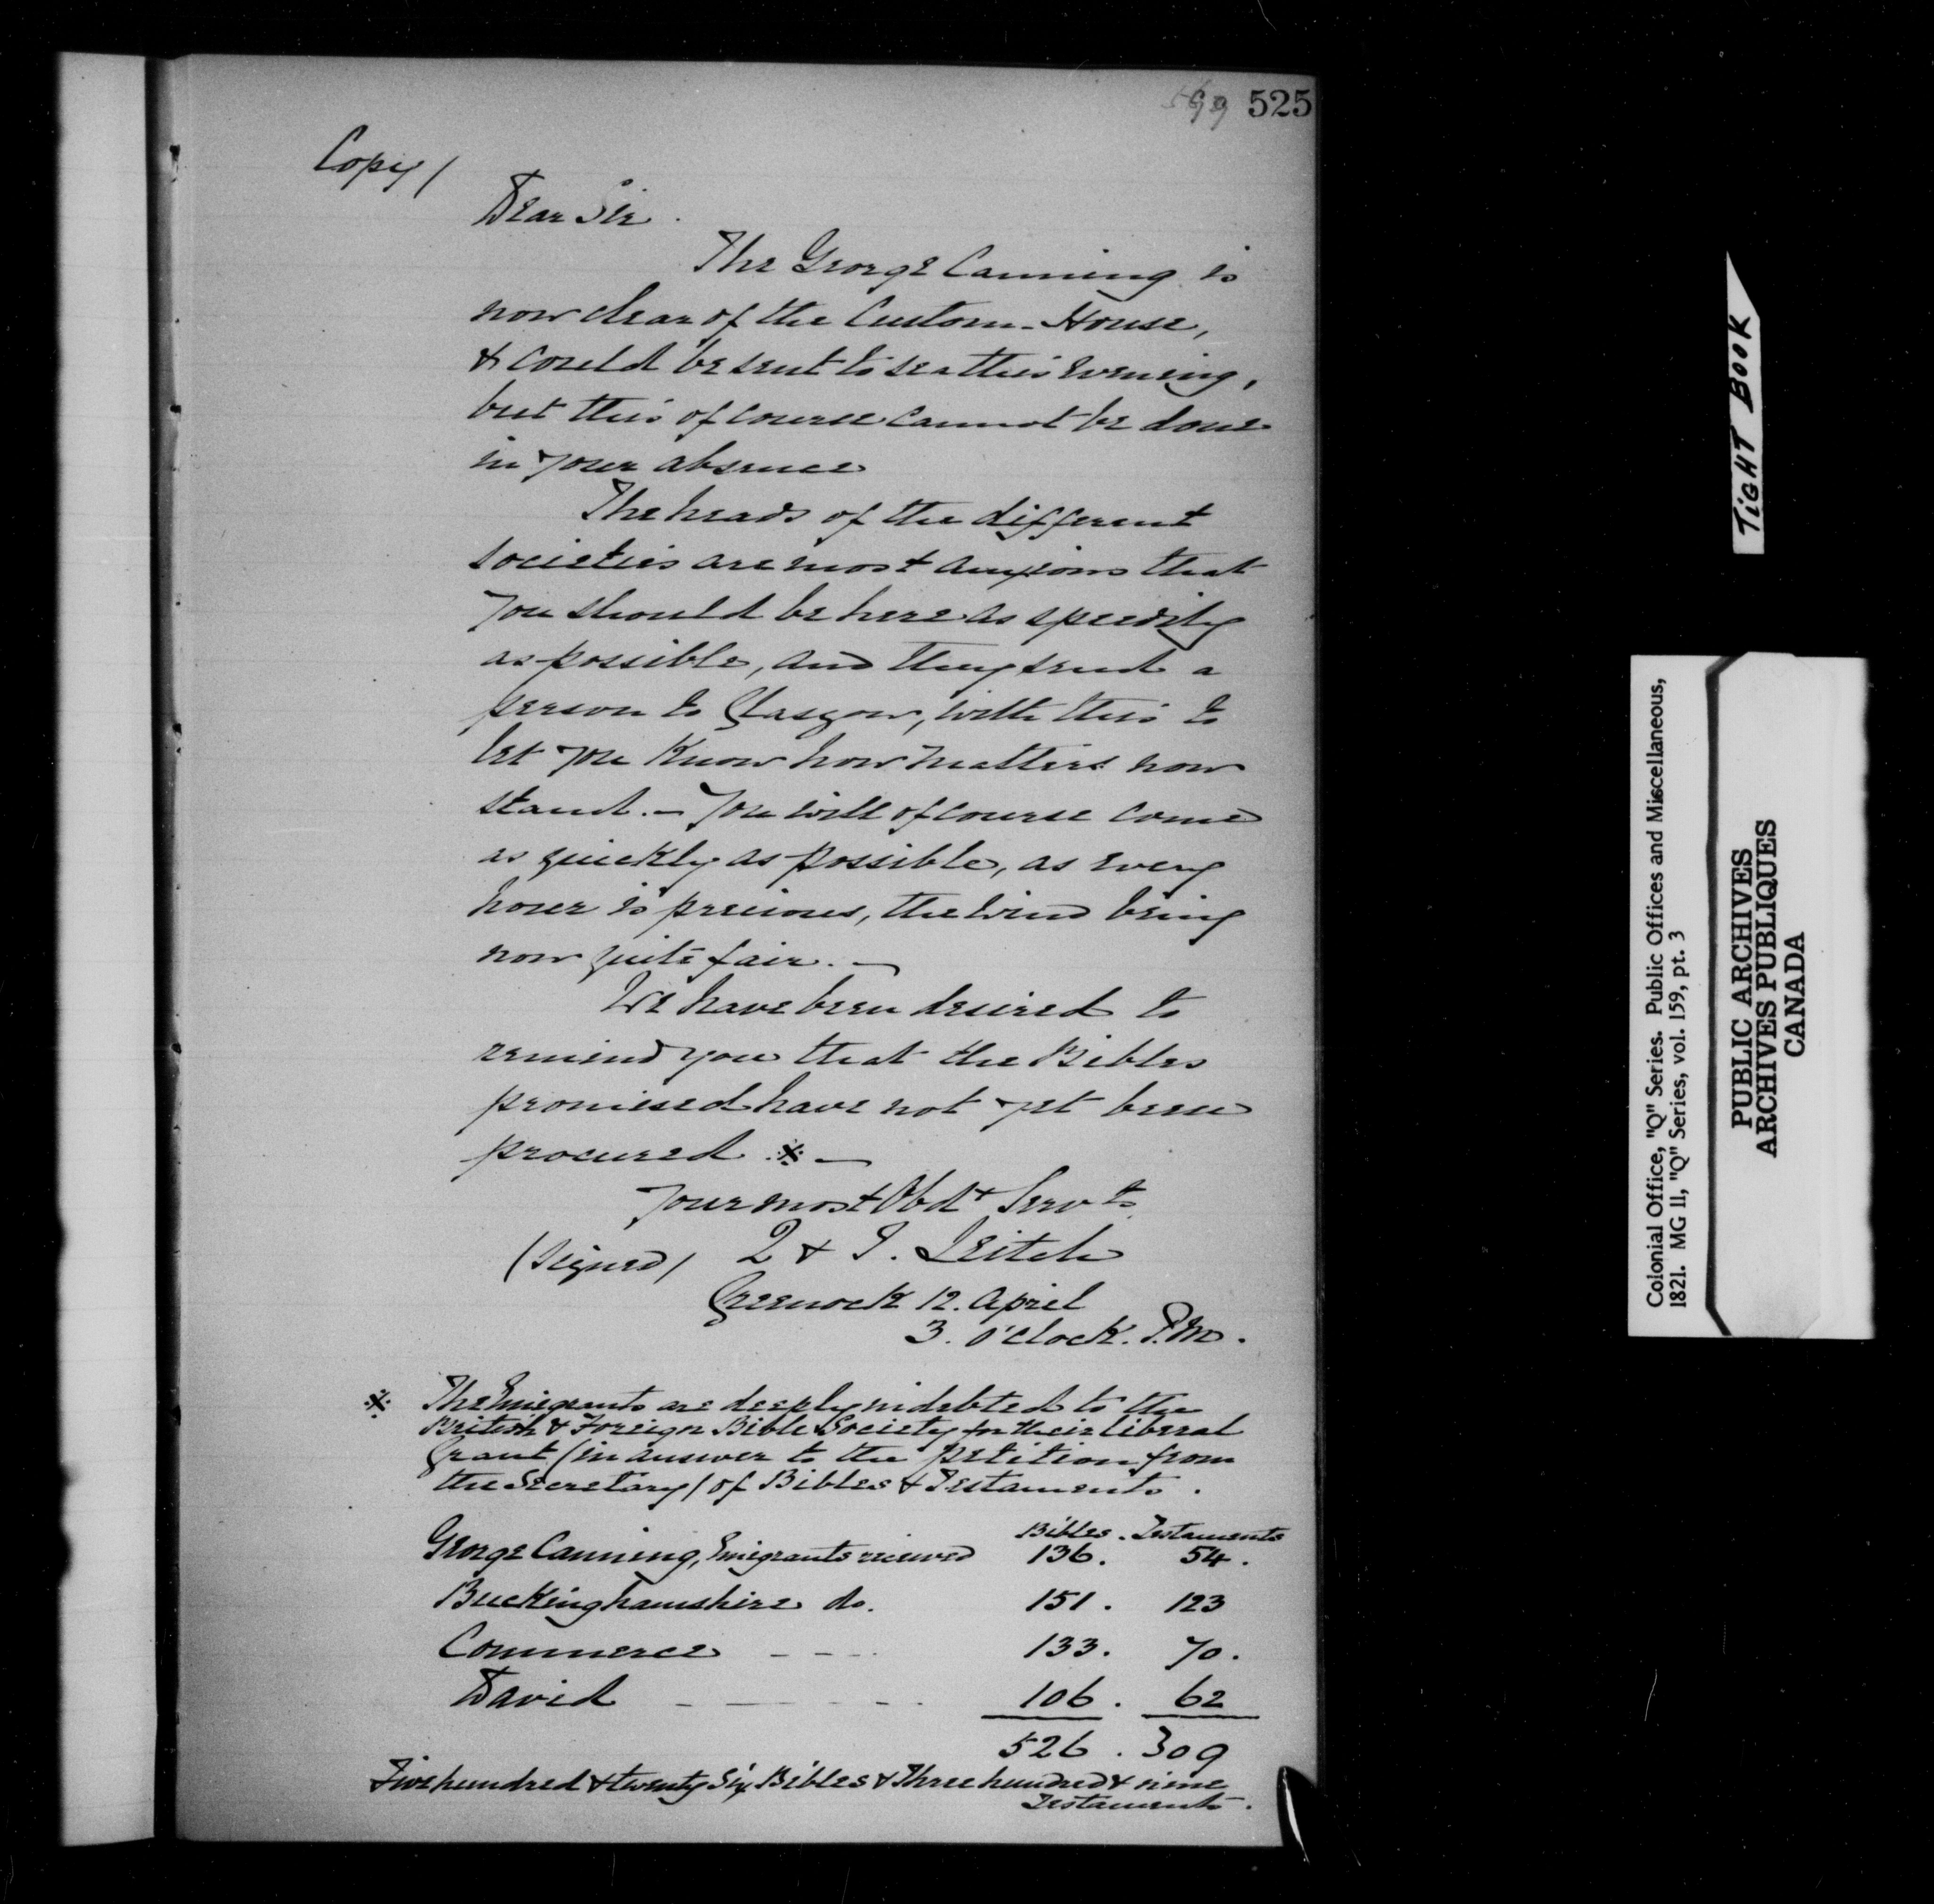 599 525
Copy/
Dear Sir.
The George Canning is
now clear of the Custom-House,
& could be sent to sea this evening,
but this of course cannot be done
in your absence
The heads of the different
societies are most anxious that
you should be here as speedily
as possible, and they send a
person to Glasgow, with this to
let you know how matters now
stand. — You will of course come
as quickly as possible, as every
hour is precious, the wind being
now quite fair. —
We have been desired to
remind you that the Bibles
promised have not yet been
procured ※ —
Your most Obdt Servts
(Signed) Q & J. Leitch
Greenock 12. April
3. o'clock. P.M.
※ The Emigrants are deeply indebted to the
British & Foreign Bible Society for their liberal
Grant (in answer to the petition from
the Secretary) of Bibles & Testaments.
Bibles. Testaments
George Canning, Emigrants received 136. 54.
Buckinghamshire do. 151. 123
Commerce - - - - 133. 70.
David - - - - - - 106. 62
526. 309
Five hundred & twenty Six Bibles & Three hundred & nine
Testaments.
TIGHT BOOK
Colonial Office, "Q" Series. Public Offices and Miscellaneous,
1821. MG 11, "Q" Series, vol. 159, pt. 3
PUBLIC ARCHIVES
ARCHIVES PUBLIQUES
CANADA